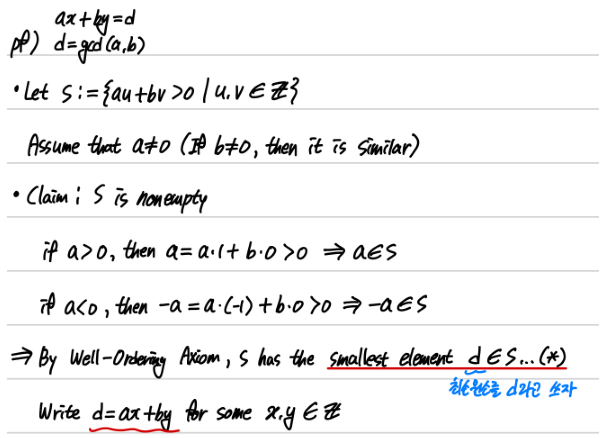 ax+by=d
pf) d=gcd(a,b)
• Let S:={au+bv>0 | u,v∈ℤ}
Assume that a≠0 (If b≠0, then it is similar)
• Claim: S is nonempty
if a>0, then a=a·1+b·0>0 ⇒ a∈S
if a<0, then -a=a·(-1)+b·0>0 ⇒ -a∈S
⇒ By Well-Ordering Axiom, S has the smallest element d∈S...(*)
최소원소를 d라고 쓰자
Write d=ax+by for some x,y∈ℤ